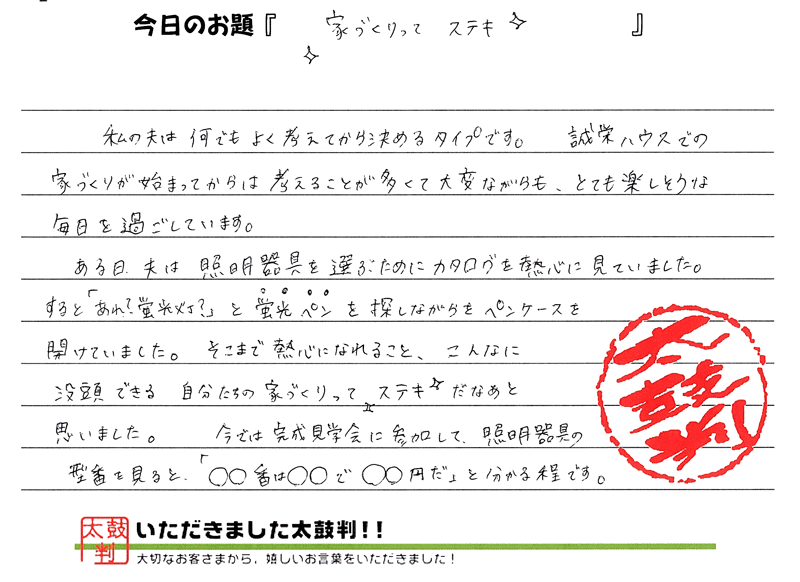 今日のお題『 家づくりって ステキ✧ 』
私の夫は何でもよく考えてから決めるタイプです。 誠栄ハウスでの
家づくりが始まってからは考えることが多くて大変ながらも、とても楽しそうな
毎日を過ごしています。
ある日、夫は照明器具を選ぶためにカタログを熱心に見ていました。
すると「あれ？蛍光灯？」と蛍光ペンを探しながらをペンケースを
開けていました。そこまで熱心になれること、こんなに
没頭できる 自分たちの家づくりってステキ✧だなあと
思いました。 今では完成見学会に参加して、照明器具の
型番を見ると、「〇〇番は〇〇で〇〇円だ」と分かる程です。
太鼓判
太鼓判
いただきました太鼓判!!
大切なお客さまから，嬉しいお言葉をいただきました！